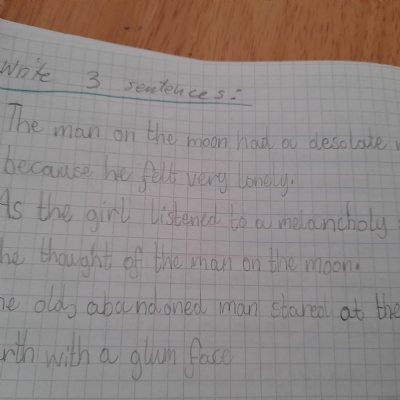 Write 3 sentences:
The man on the moon had a desolate
because he felt very lonely.
As the girl listened to a melancholy
he thought of the man on the moon.
he old, abandoned man stared at the
rth with a glum face